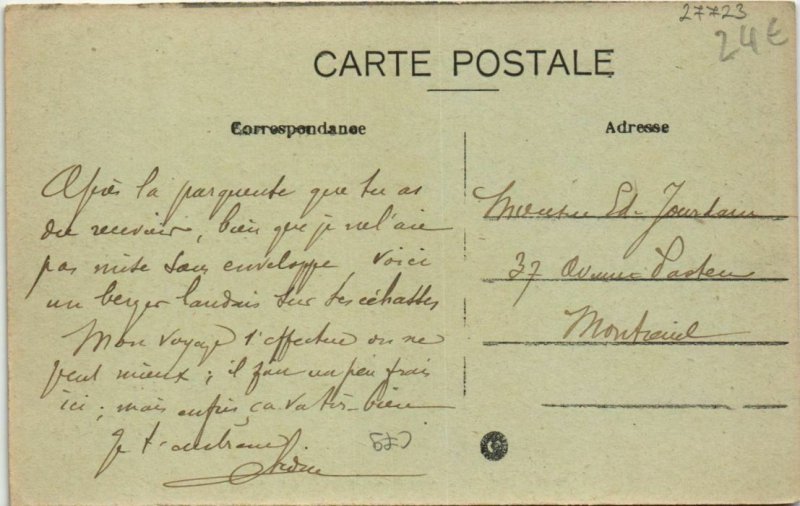 27723
24€
CARTE POSTALE
Correspondance
Adresse
Après la parquente que tu as
du recevoir, bien que je ne l'aie
pas mise sous enveloppe, voici
un berger landais sur ses échasses
Mon voyage s'effectue on ne
peut mieux ; il fait un peu frais
ici ; mais enfin, ça va très-bien
Je t'embrasse
Monsieur Ed. Jourdain
37 Avenue Pasteur
Montreuil